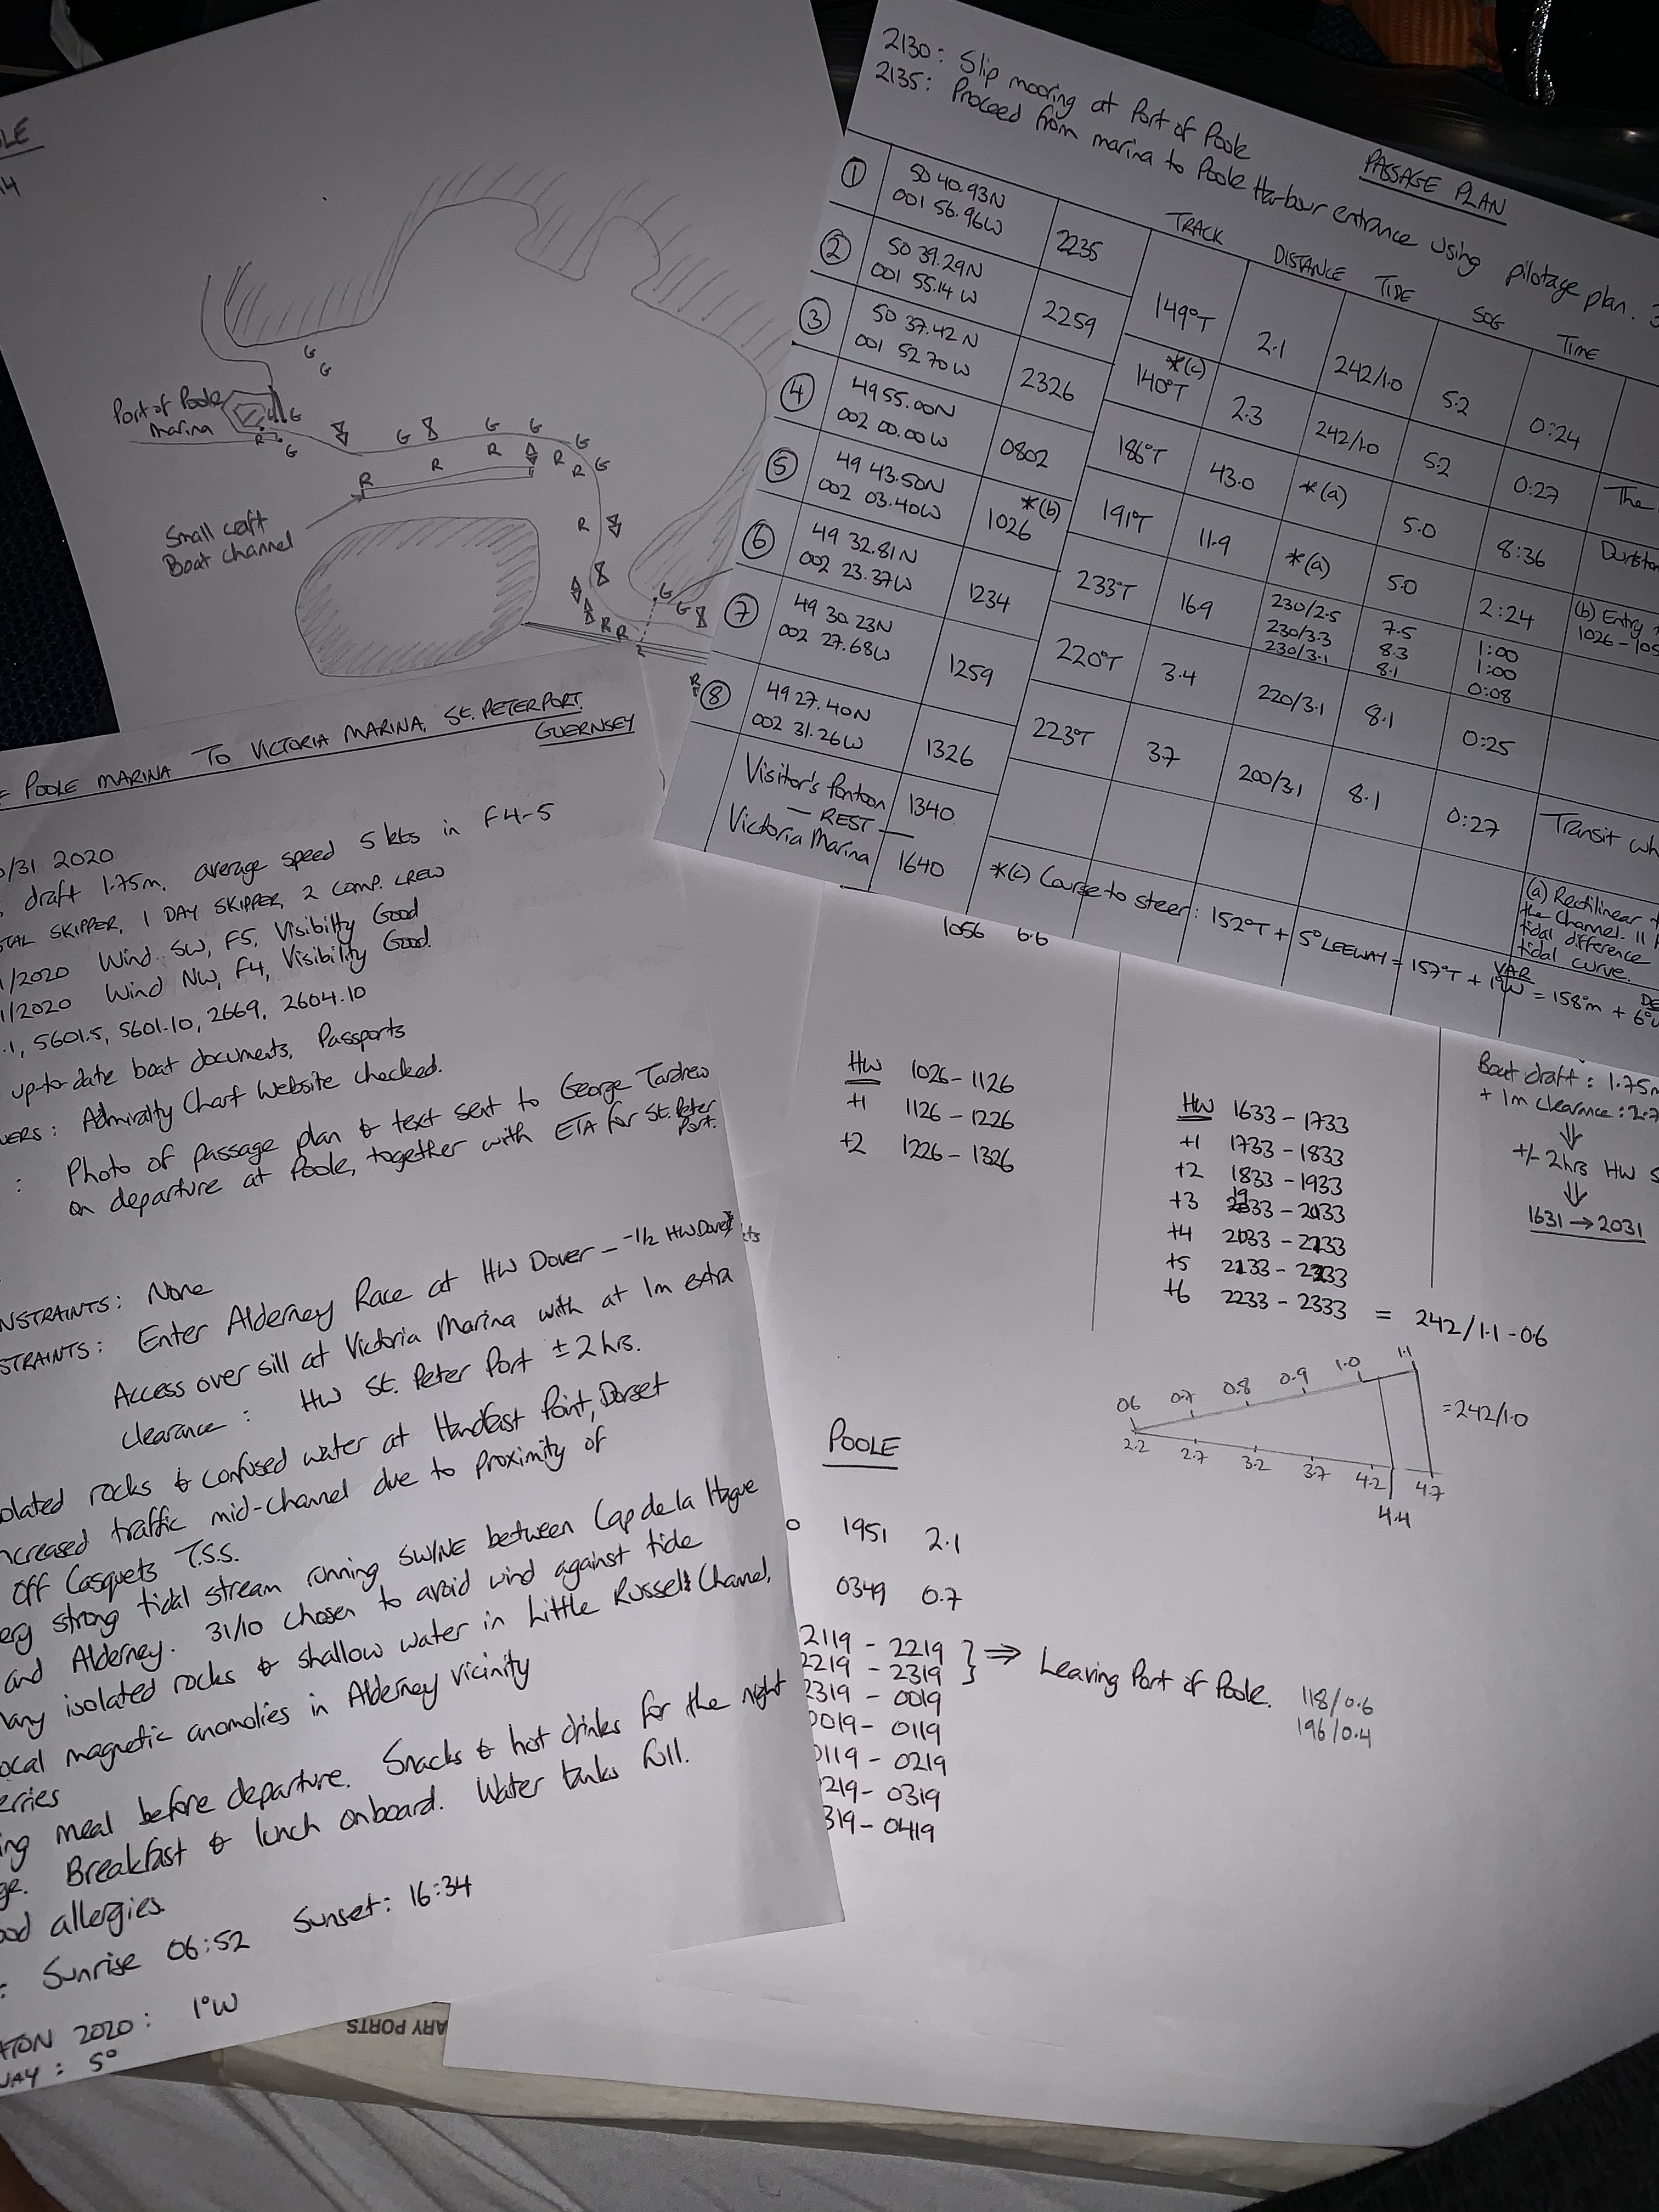 LE
14
G
G
Port of Poole
marina
G
R
G
G
G
G
G
G
R
R
R
R
R
R
Small craft
Boat channel
R
R
R
G
G
2130: Slip mooring at Port of Poole
2135: Proceed from marina to Poole Harbour entrance using pilotage plan. 3
PASSAGE PLAN
TRACK DISTANCE TIDE SOG TIME
① 50 40.93N
001 56.96W 2235
149°T 2.1 242/1.0 5.2 0:24
② 50 39.29N
001 55.14W 2259
*(c)
140°T 2.3 242/1.0 5.2 0:27 The
③ 50 37.42N
001 52.70W 2326
186°T 43.0 *(a) 5.0 8:36 Durlston
④ 49 55.00N
002 00.00W 0802
191°T 11.9 *(a) 5.0 2:24 (b) Entry
1026-105
⑤ 49 43.50N
002 03.40W 1026 *(b)
233°T 16.9 230/2.5 7.5 1:00
230/3.3 8.3 1:00
230/3.1 8.1 0:08
⑥ 49 32.81N
002 23.37W 1234
220°T 3.4 220/3.1 8.1 0:25
⑦ 49 30.23N
002 27.68W 1259
223°T 3.7 200/3.1 8.1 0:27 Transit wh
⑧ 49 27.40N
002 31.26W 1326
Visitor's Pontoon 1340
— REST —
Victoria Marina 1640
(a) Rectilinear
the Channel. 11
tidal difference
tidal curve.
*(c) Course to steer: 152°T + 5° LEEWAY = 157°T + 1°W = 158°m + 6°
VAR
DE
POOLE MARINA TO VICTORIA MARINA, St. PETER PORT.
GUERNSEY
/31 2020
draft 1.75m, average speed 5 kts in F4-5
TAL SKIPPER, 1 DAY SKIPPER, 2 COMP. CREW
1/2020 Wind SW, F5, Visibility Good
1/2020 Wind NW, F4, Visibility Good.
.1, 5601.5, 5601.10, 2669, 2604.10
up-to-date boat documents, Passports
ERS: Admiralty Chart Website checked.
: Photo of passage plan & text sent to George Tardrew
on departure at Poole, together with ETA for St. Peter
Port.
NSTRAINTS: None
STRAINTS: Enter Alderney Race at HW Dover – -1/2 HW Dover
Access over sill at Victoria Marina with at 1m extra
clearance : HW St. Peter Port ± 2 hrs.
olated rocks & confused water at Handfast Point, Dorset
ncreased traffic mid-channel due to proximity of
Off Casquets T.S.S.
ery strong tidal stream running SW/NE between Cap de la Hague
and Alderney. 31/10 chosen to avoid wind against tide
any isolated rocks & shallow water in Little Russell Channel,
ocal magnetic anomolies in Alderney vicinity
erries
ing meal before departure. Snacks & hot drinks for the night
ge. Breakfast & lunch onboard. Water tanks full.
ood allergies.
: Sunrise 06:52 Sunset: 16:34
ATION 2020: 1°W
WAY: 5°
kts
1056 6.6
HW 1026-1126
+1 1126-1226
+2 1226-1326
HW 1633-1733
+1 1733-1833
+2 1833-1933
+3 1933-2033
+4 2033-2133
+5 2133-2233
+6 2233-2333 = 242/1.1-0.6
Boat draft: 1.75m
+ 1m clearance: 2.7
+/- 2hrs HW S
1631 → 2031
0.6 0.7 0.8 0.9 1.0 1.1
= 242/1.0
2.2 2.7 3.2 3.7 4.2 4.7
4.4
POOLE
1951 2.1
0349 0.7
2119 - 2219
2219 - 2319
⇒ Leaving Port of Poole.
118/0.6
196/0.4
2319 - 0019
0019 - 0119
0119 - 0219
219 - 0319
319 - 0419
ARY PORTS